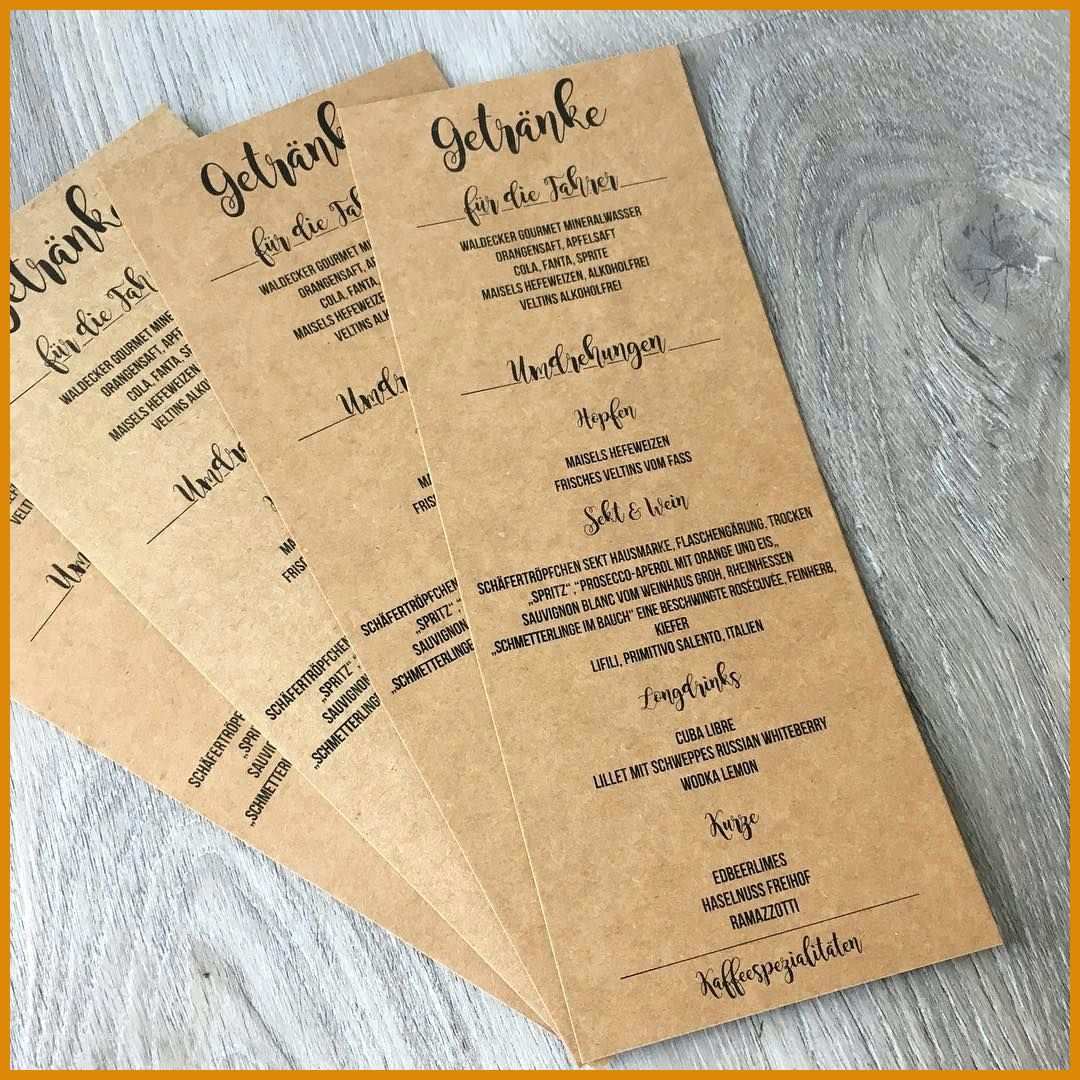 Getränke
für die Fahrer
WALDECKER GOURMET MINERALWASSER
ORANGENSAFT, APFELSAFT
COLA, FANTA, SPRITE
MAISELS HEFEWEIZEN, ALKOHOLFREI
VELTINS ALKOHOLFREI
Umdrehungen
Hopfen
MAISELS HEFEWEIZEN
FRISCHES VELTINS VOM FASS
Sekt & Wein
SCHÄFERTRÖPFCHEN SEKT HAUSMARKE, FLASCHENGÄRUNG, TROCKEN
„SPRITZ“,“PROSECCO-APEROL MIT ORANGE UND EIS„
SAUVIGNON BLANC VOM WEINHAUS GROH, RHEINHESSEN
„SCHMETTERLINGE IM BAUCH“ EINE BESCHWINGTE ROSÉCUVÉE, FEINHERB,
KIEFER
LIFILI, PRIMITIVO SALENTO, ITALIEN
Longdrinks
CUBA LIBRE
LILLET MIT SCHWEPPES RUSSIAN WHITEBERRY
WODKA LEMON
Kurze
EDBEERLIMES
HASELNUSS FREIHOF
RAMAZZOTTI
Kaffeespezialitäten
Getränk
für die Fah
WALDECKER GOURMET MINE
ORANGENSAFT, AP
COLA, FANTA,
MAISELS HEFEWEIZE
VELTINS ALK
Umdr
M
FRIS
SCHÄFERTRÖPFCHEN
„SPRITZ“,“
SAUVIGNON
„SCHMETTERLINGE
Getränk
für die Fahr
WALDECKER GOURMET MINER
ORANGENSAFT, APFE
COLA, FANTA, SP
MAISELS HEFEWEIZEN
VELTINS ALKO
Umdre
MA
FRISC
SCHÄFERTRÖPFCHEN
„SPRITZ“,“P
SAUVIGNON
„SCHMETTERLING
VELT
Um
SCHÄFERTRÖPF
„SPRI
SAUVIN
„SCHMETTER